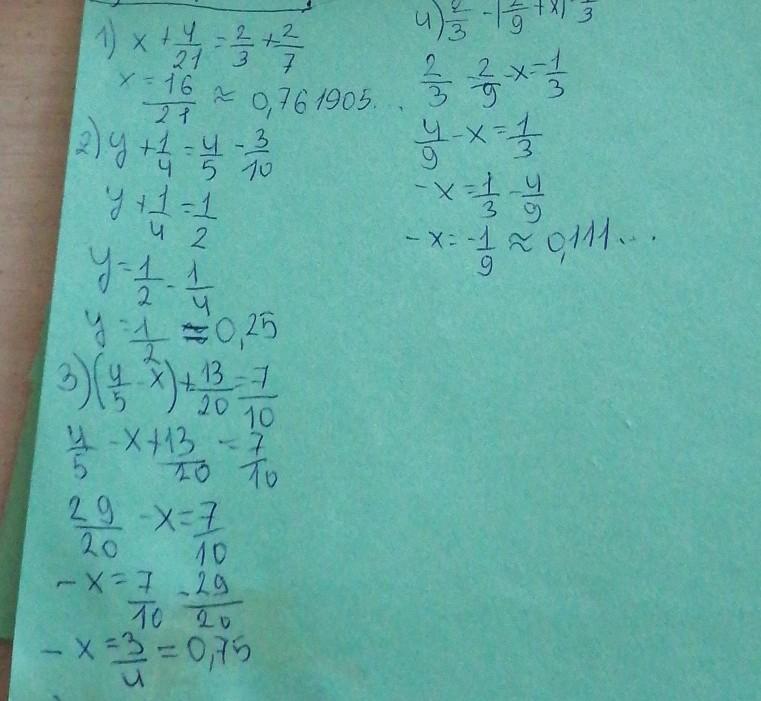 1) x + 4/21 = 2/3 + 2/7
x = 16/21 ≈ 0,761905...
2) y + 1/4 = 4/5 - 3/10
y + 1/4 = 1/2
y = 1/2 - 1/4
y = 1/2 = 0,25
3) (4/5 - x) + 13/20 = 7/10
4/5 - x + 13/20 = 7/10
29/20 - x = 7/10
- x = 7/10 - 29/20
- x = 3/4 = 0,75
4) 2/3 - (2/9 + x) = 1/3
2/3 - 2/9 - x = 1/3
4/9 - x = 1/3
- x = 1/3 - 4/9
- x = -1/9 ≈ 0,111...